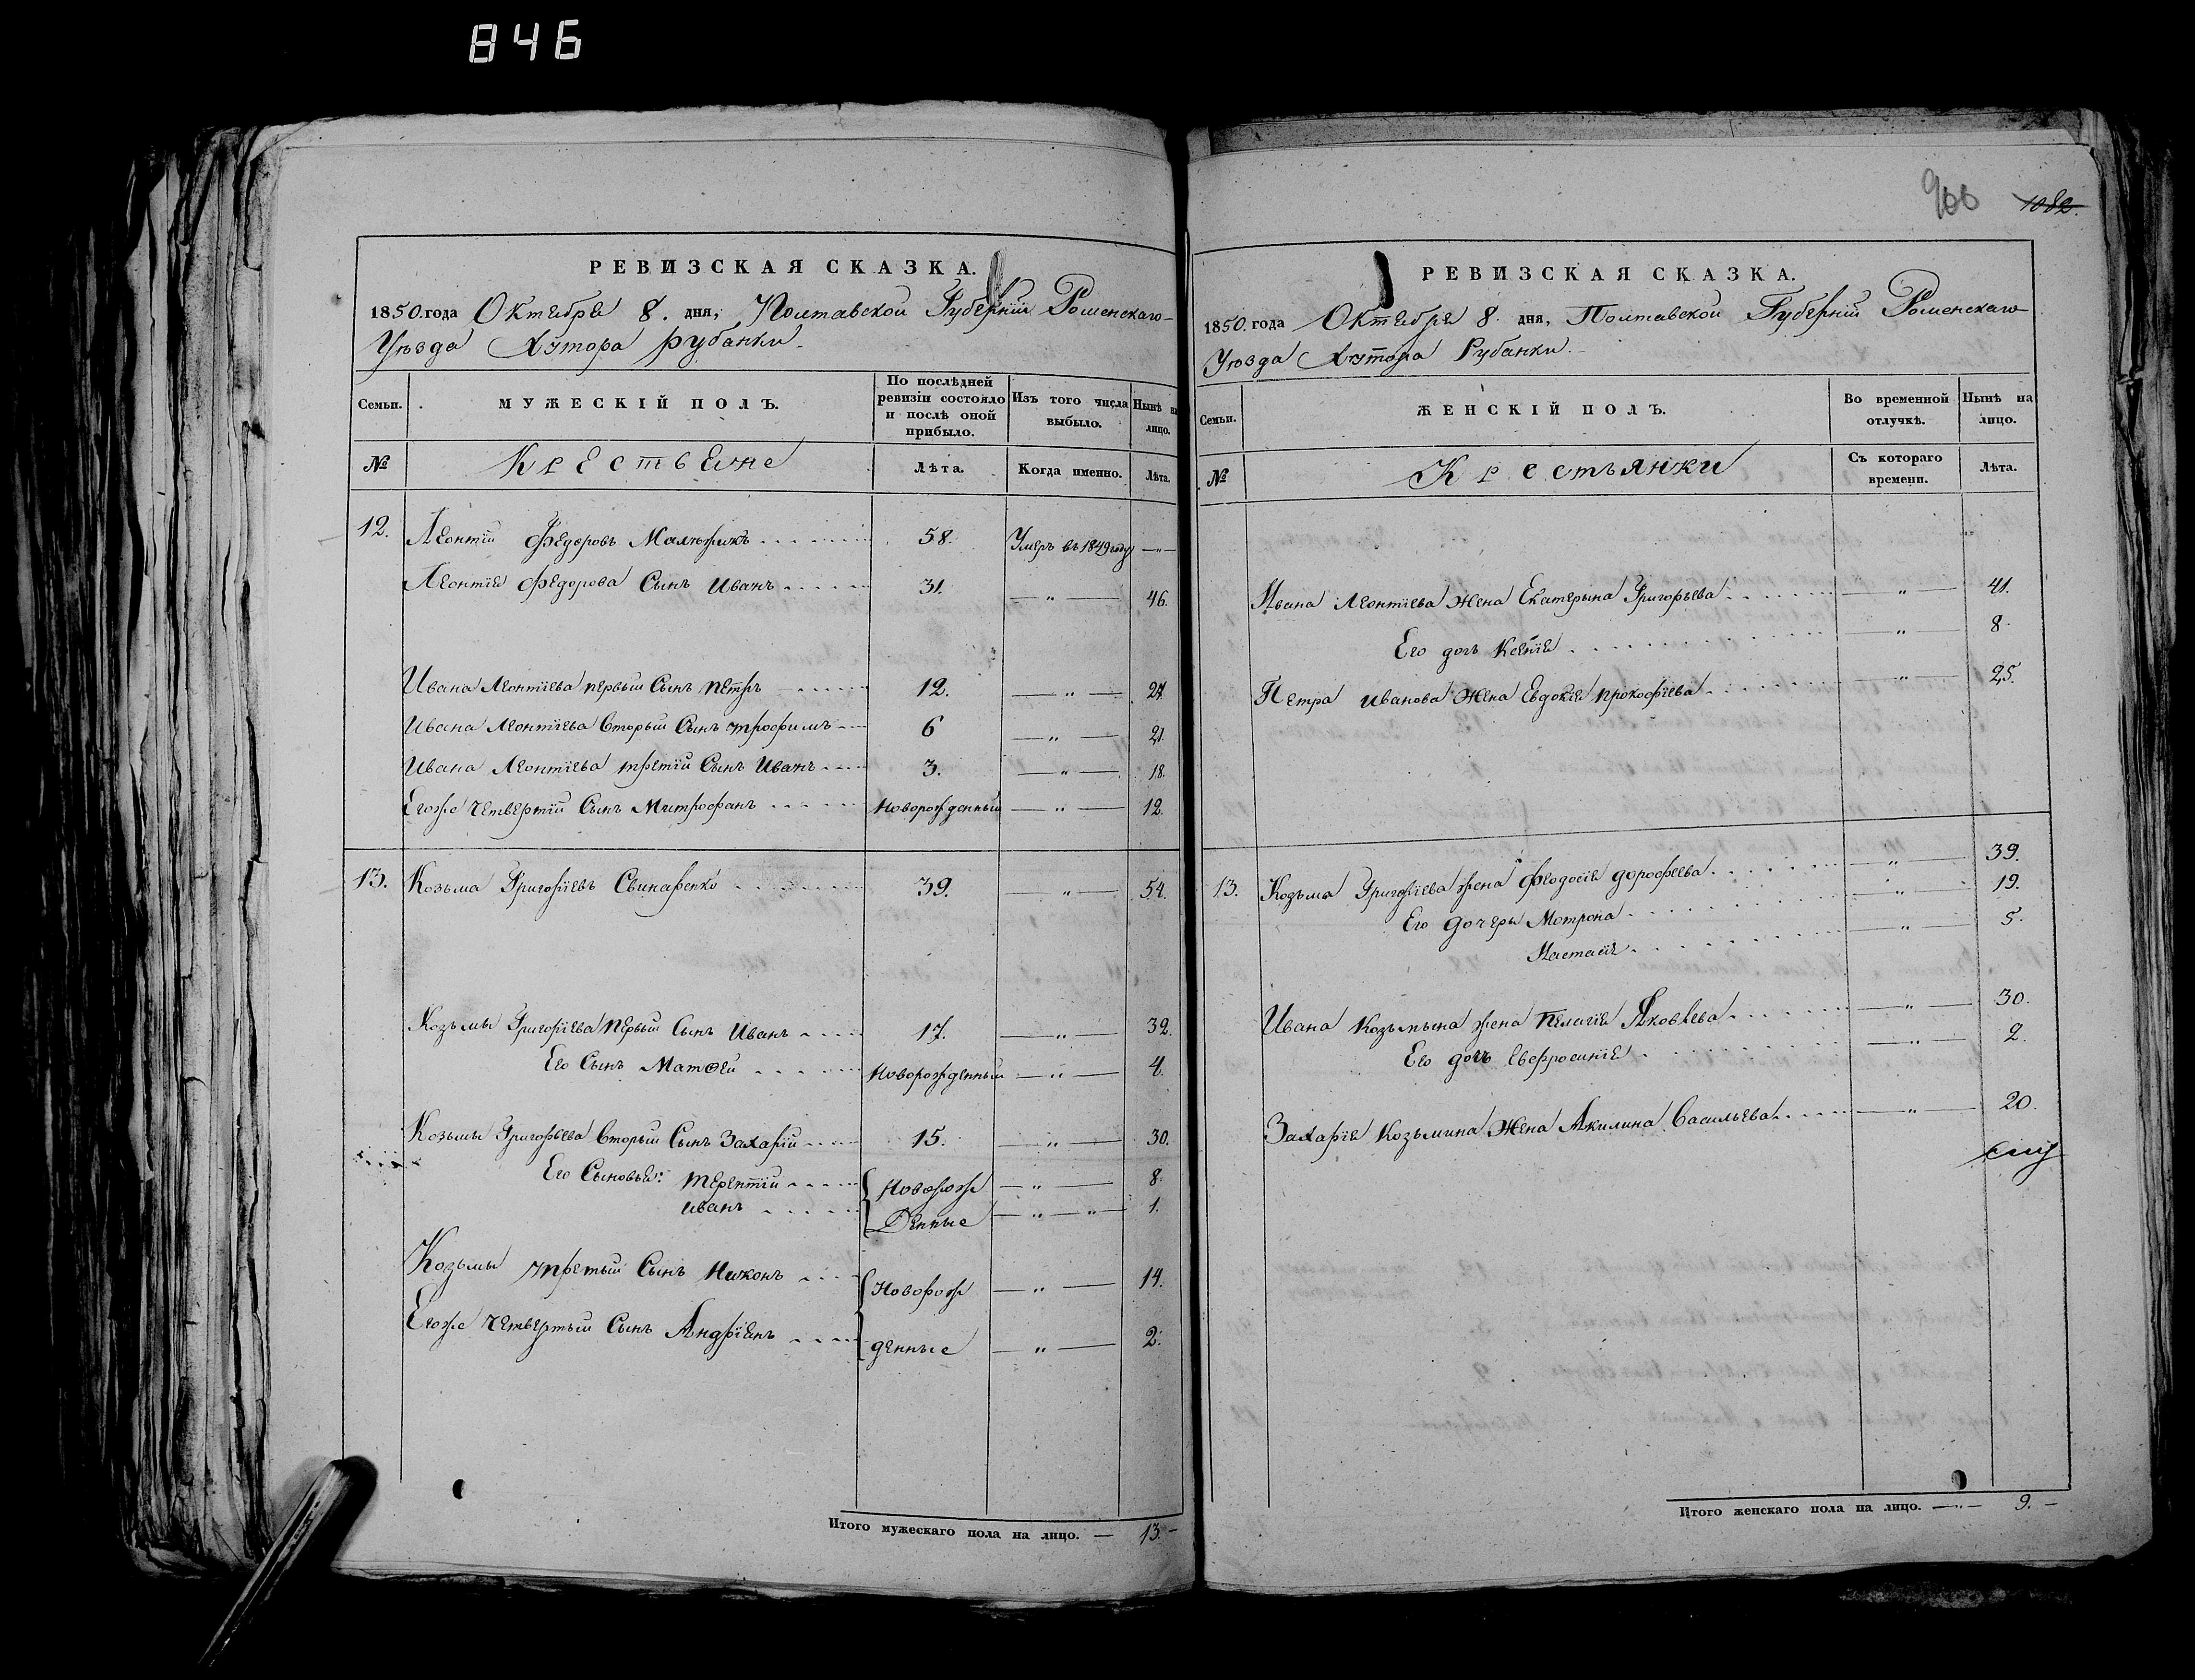 846
РЕВИЗСКАЯ СКАЗКА.
1850. года Октября 8. дня, Полтавской Губерніи Роменскаго
Уѣзда Хутора Рубанки.
Семьи.
МУЖЕСКІЙ ПОЛЪ.
По послѣдней ревизіи состояло и послѣ оной прибыло.
Изъ того числа выбыло.
Нынѣ на лицо.
№
Крестьяне
Лѣта.
Когда именно.
Лѣта.
12. Леонтій Федоровъ Малюжикъ 58. Умеръ въ 1849 году —"—
Леонтія Федорова Сынъ Иванъ 31. —"— 46.
Ивана Леонтіева первый Сынъ Петръ 12. —"— 27.
Ивана Леонтіева Вторый Сынъ трофимъ 6 —"— 21.
Ивана Леонтіева третій Сынъ Иванъ 3. —"— 18.
Егоже четвертій Сынъ Митрофанъ Новорожденный —"— 12.
13. Козьма Григоріевъ Свинаренко 39. "— 54.
Козьмы Григоріева первый Сынъ Иванъ 17. —"— 32.
Его Сынъ Матѳей Новорожденный —"— 4.
Козьмы Григорьева Вторый Сынъ Захарій 15. —"— 30.
Его Сыновья: терентій Новорож —"— 8.
иванъ Денные —"—"— 1.
Козьмы третьий Сынъ Никонъ Новорож —"— 14.
Егоже четвертый Сынъ Андріянъ денные —"— 2.
Итого мужескаго пола на лицо. — 13.—
900 1082.
РЕВИЗСКАЯ СКАЗКА.
1850. года Октября 8. дня, Полтавской Губерніи Роменскаго
Уѣзда Хутора Рубанки.
Семьи.
ЖЕНСКІЙ ПОЛЪ.
Во временной отлучкѣ.
Нынѣ на лицо.
№
Крестьянки
Съ котораго времени.
Лѣта.
Ивана Леонтіева Жена Екатерына Григорьева —"— 41.
Его дочь Ксенія —"— 8.
Петра иванова Жена Евдокія прокофіева —"— 25.
13. Козьмы Григоріева жена Феодосія дорофеева —"— 39.
Его дочеры Мотрона —"— 19.
Настасія —"— 5.
Ивана Козьмына жена Пелагія Яковлева —"— 30.
Его дочь Евфросинія —"— 2.
Захарія Козьмина Жена Акилина Васильева —"— 20.
Итого женскаго пола на лицо. —"— 9.—